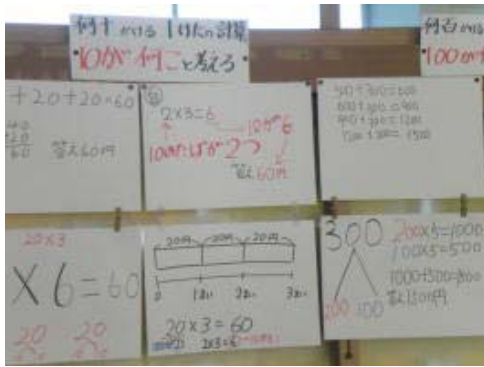 何十かける1けたの計算
・10が何こと考える
何百
・100が
+20+20=60
60 答え60円
2×3=6
10が6
10のたばが2つ
答え60円
600+300=900
900+300=1200
1200+300=1500
20×3
×6=60
20 20
20円 20円 20円
0 1こ 2こ 3こ
20×3=60
2×3=6
300
200 100
200×5=1000
100×5=500
1000+500=1500
答え1500円